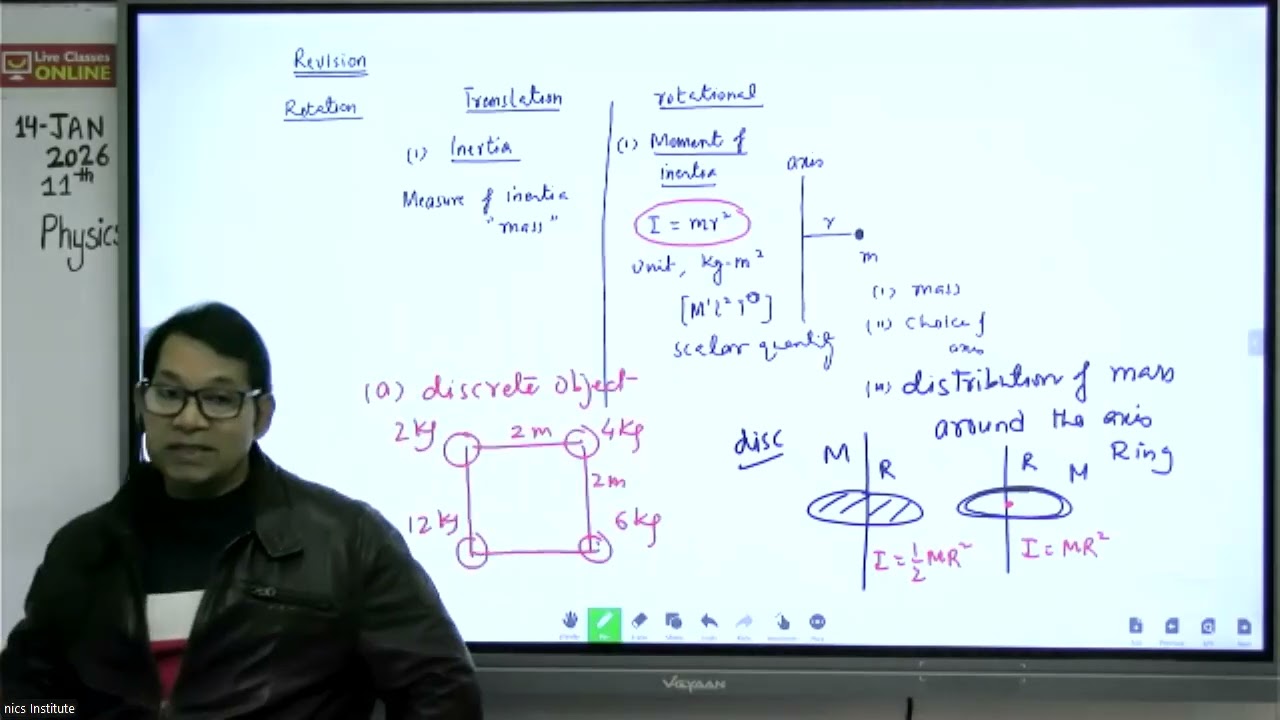 Live Classes
ONLINE
14-JAN
2026
11th
Physics
Revision
Rotation
Translation
rotational
(i) Inertia
Measure of inertia
"mass"
(i) Moment of
inertia
I = mr²
unit, kg-m²
[M¹L²T⁰]
scalar quantity
axis
r
m
(i) mass
(ii) choice of
axis
(iii) distribution of mass
around the axis
(a) discrete object
2kg
2m
4kg
2m
12kg
6kg
disc
M
R
I = 1/2 MR²
R
M
Ring
I = MR²
VIEYAAN
nics Institute